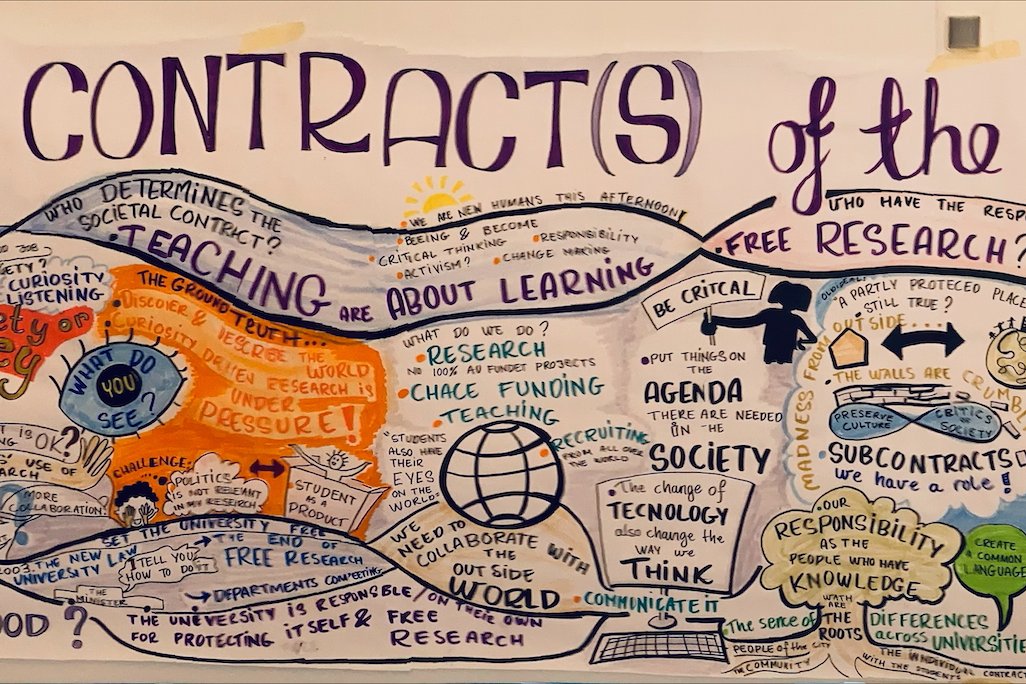 CONTRACT(S) of the
WHO DETERMINES THE
SOCIETAL CONTRACT?
• TEACHING ARE ABOUT LEARNING
WE ARE NEW HUMANS THIS AFTERNOON!
• BEEING & BECOME
• CRITICAL THINKING
• ACTIVISM?
• RESPONSIBILITY
• CHANGE MAKING
WHO HAVE THE RESP
• FREE RESEARCH?
JOB?
ETY?
CURIOSITY
LISTENING
ety or
cy
WHAT DO
YOU
SEE?
THE GROUND TRUTH...
• DISCOVER & DESCRIBE THE WORLD
• CURIOSITY DRIVEN RESEARCH is
UNDER
PRESSURE!
T IS OK?
NG
USE OF
ARCH
MORE
COLLABORATION!
CHALLENGE:
• POLITICS
IS NOT RELEVANT
IN MY RESEARCH
STUDENT
AS A
PRODUCT
WHAT DO WE DO?
• RESEARCH
NO 100% AU FUNDET PROJECTS
• CHACE FUNDING
• TEACHING
"STUDENTS
ALSO HAVE
THEIR
EYES
ON THE
WORLD"
• RECRUITING
FROM ALL OVER
THE WORLD
WE NEED TO
COLLABORATE WITH
THE
OUT SIDE
WORLD
BE CRITCAL
• PUT THINGS ON
THE
AGENDA
THERE ARE NEEDED
IN THE
SOCIETY
• The change of
TECNOLOGY
also change the
WAY we
THINK
• COMMUNICATE IT
MADNESS FROM
"A PARTLY PROTECED PLACE
STILL TRUE?
OUTSIDE....
• THE WALLS ARE CRUMB
PRESERVE
CULTURE
CRITICS
OF
SOCIETY
• SUBCONTRACTS
we have a role!
• OUR
RESPONSIBILITY
AS THE
PEOPLE WHO HAVE
KNOWLEDGE
CREATE
A COMMON
LANGUAGE
WATH
ARE
THE
ROOTS
• The sense of
PEOPLE OF THE CITY
IN COMMUNITY
DIFFERENCES
across UNIVERSITIE
THE INDIVIDUAL CONTRAC
WITH THE STUDENTS
SET THE UNIVERSITY FREE
2003. THE NEW
UNIVERSITY LAW
I TELL YOU
HOW TO DO IT
THE
MINISTER
→ THE END OF
FREE RESEARCH
→ DEPARTMENTS COMPETING
OOD?
THE UNEVERSITY IS RESPONSBLE / ON THEIR OWN
FOR PROTECTING ITSELF & FREE
RESEARCH